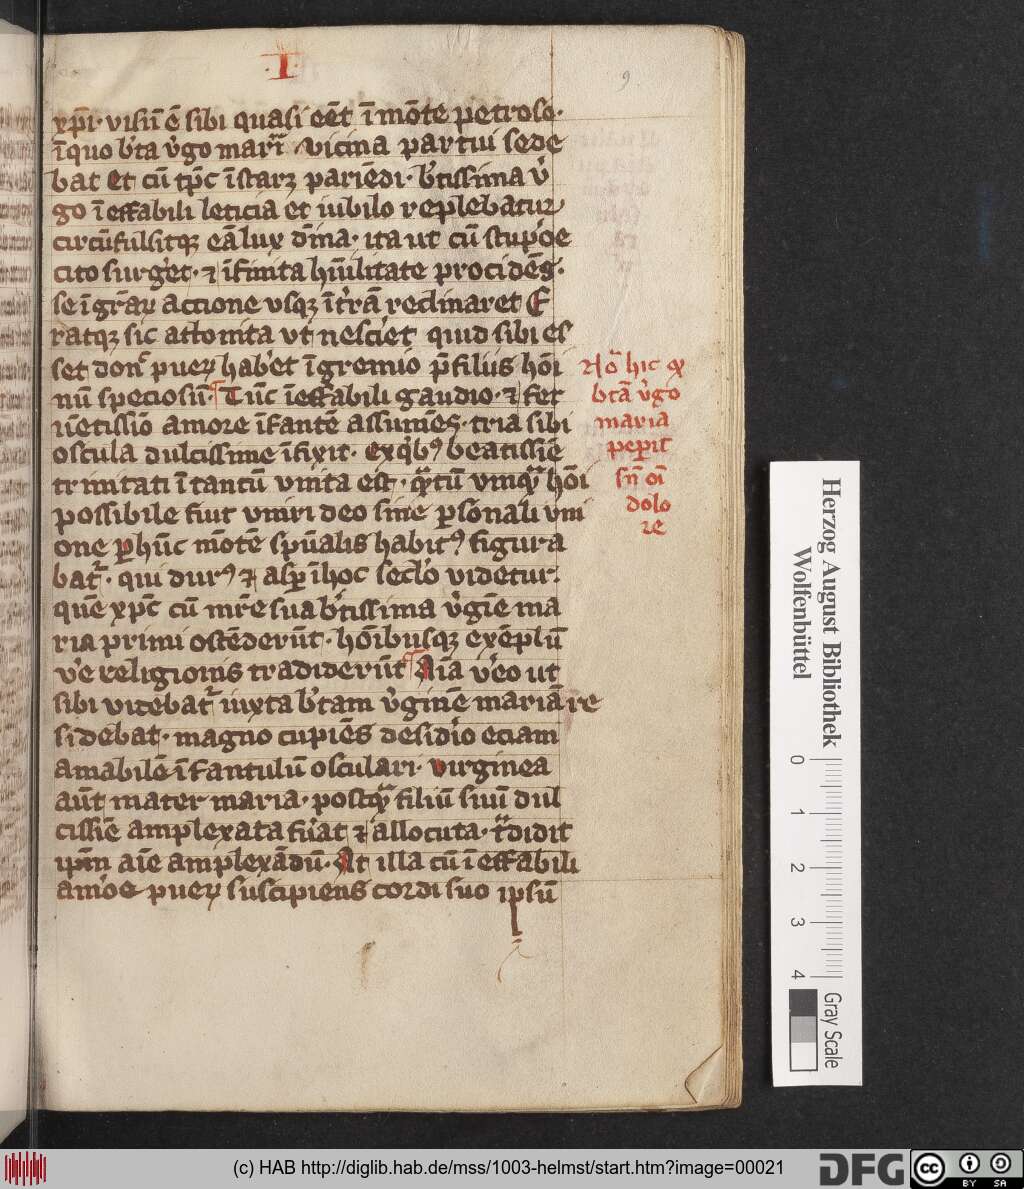 ·I·
9
xp̄i · visū ē sibi quasi eēt ī mōte petroso ·
ī quo b̓ta v̓go mari͛a vicina partui sede
bat et cū tp̄c īstarꝫ pariēdi · b̓tissima v̓
go ī effabili leticia et iubilo replebatur
circūfulsitqꝫ eā lux dīna · ita ut cū stup̓oe
cito surg̓et · ⁊ īfinita hūilitate procidēs ·
se ī gr̄aꝝ actione vsqꝫ ī t̓rā reclinaret E
ratqꝫ sic attonita vt nesci̓et quid sibi es
set don͛ puerꝫ hab̓et ī gremio p̄ filiis hōi
nū speciosū · Tūc ī effabili gaudio · ⁊ fer
uētissīo amore īfantē assumēs · tria sibi
oscula dulcissime īfixit · ex qͥbꝰ beatissīe
trinitati ī tantū vnita est · qᷓtū vnqᷓ hōi
possibile fiut vniri deo sine ꝑsonali vni
one ꝑ hūc mōtē spūalis habitꝰ figura
bat͛ · qui durꝰ ⁊ asꝑ ī hoc secl̓o videtur ·
quē xp̄c cū mr̄e sua b̓tissima v̓gīe ma
ria primi ostēderūt · hōibusqꝫ exēplū
v̓e religionis tradiderūt Aīa v̓eo ut
sibi videbat͛ iuxta b̓tam v̓ginē mariā re
sidebat · magno cupiēs desid̓io eciam
amabilē īfantulū osculari · virginea
aūt mater maria · postqᷓ filiū suū dul
cissīe amplexata fu̓at ⁊ allocuta · tᷓdidit
ip̄m aīe amplexādū · At illa cū ī effabili
am̓oe puerꝫ suscipiens cordi suo ipsū
Nō hic qͦ
btā v̓go
maria
pepit͛
sn̄ oī
dolo
re
Herzog August Bibliothek
Wolfenbüttel
0 1 2 3 4
Gray Scale
(c) HAB http://diglib.hab.de/mss/1003-helmst/start.htm?image=00021
DFG
cc
BY SA